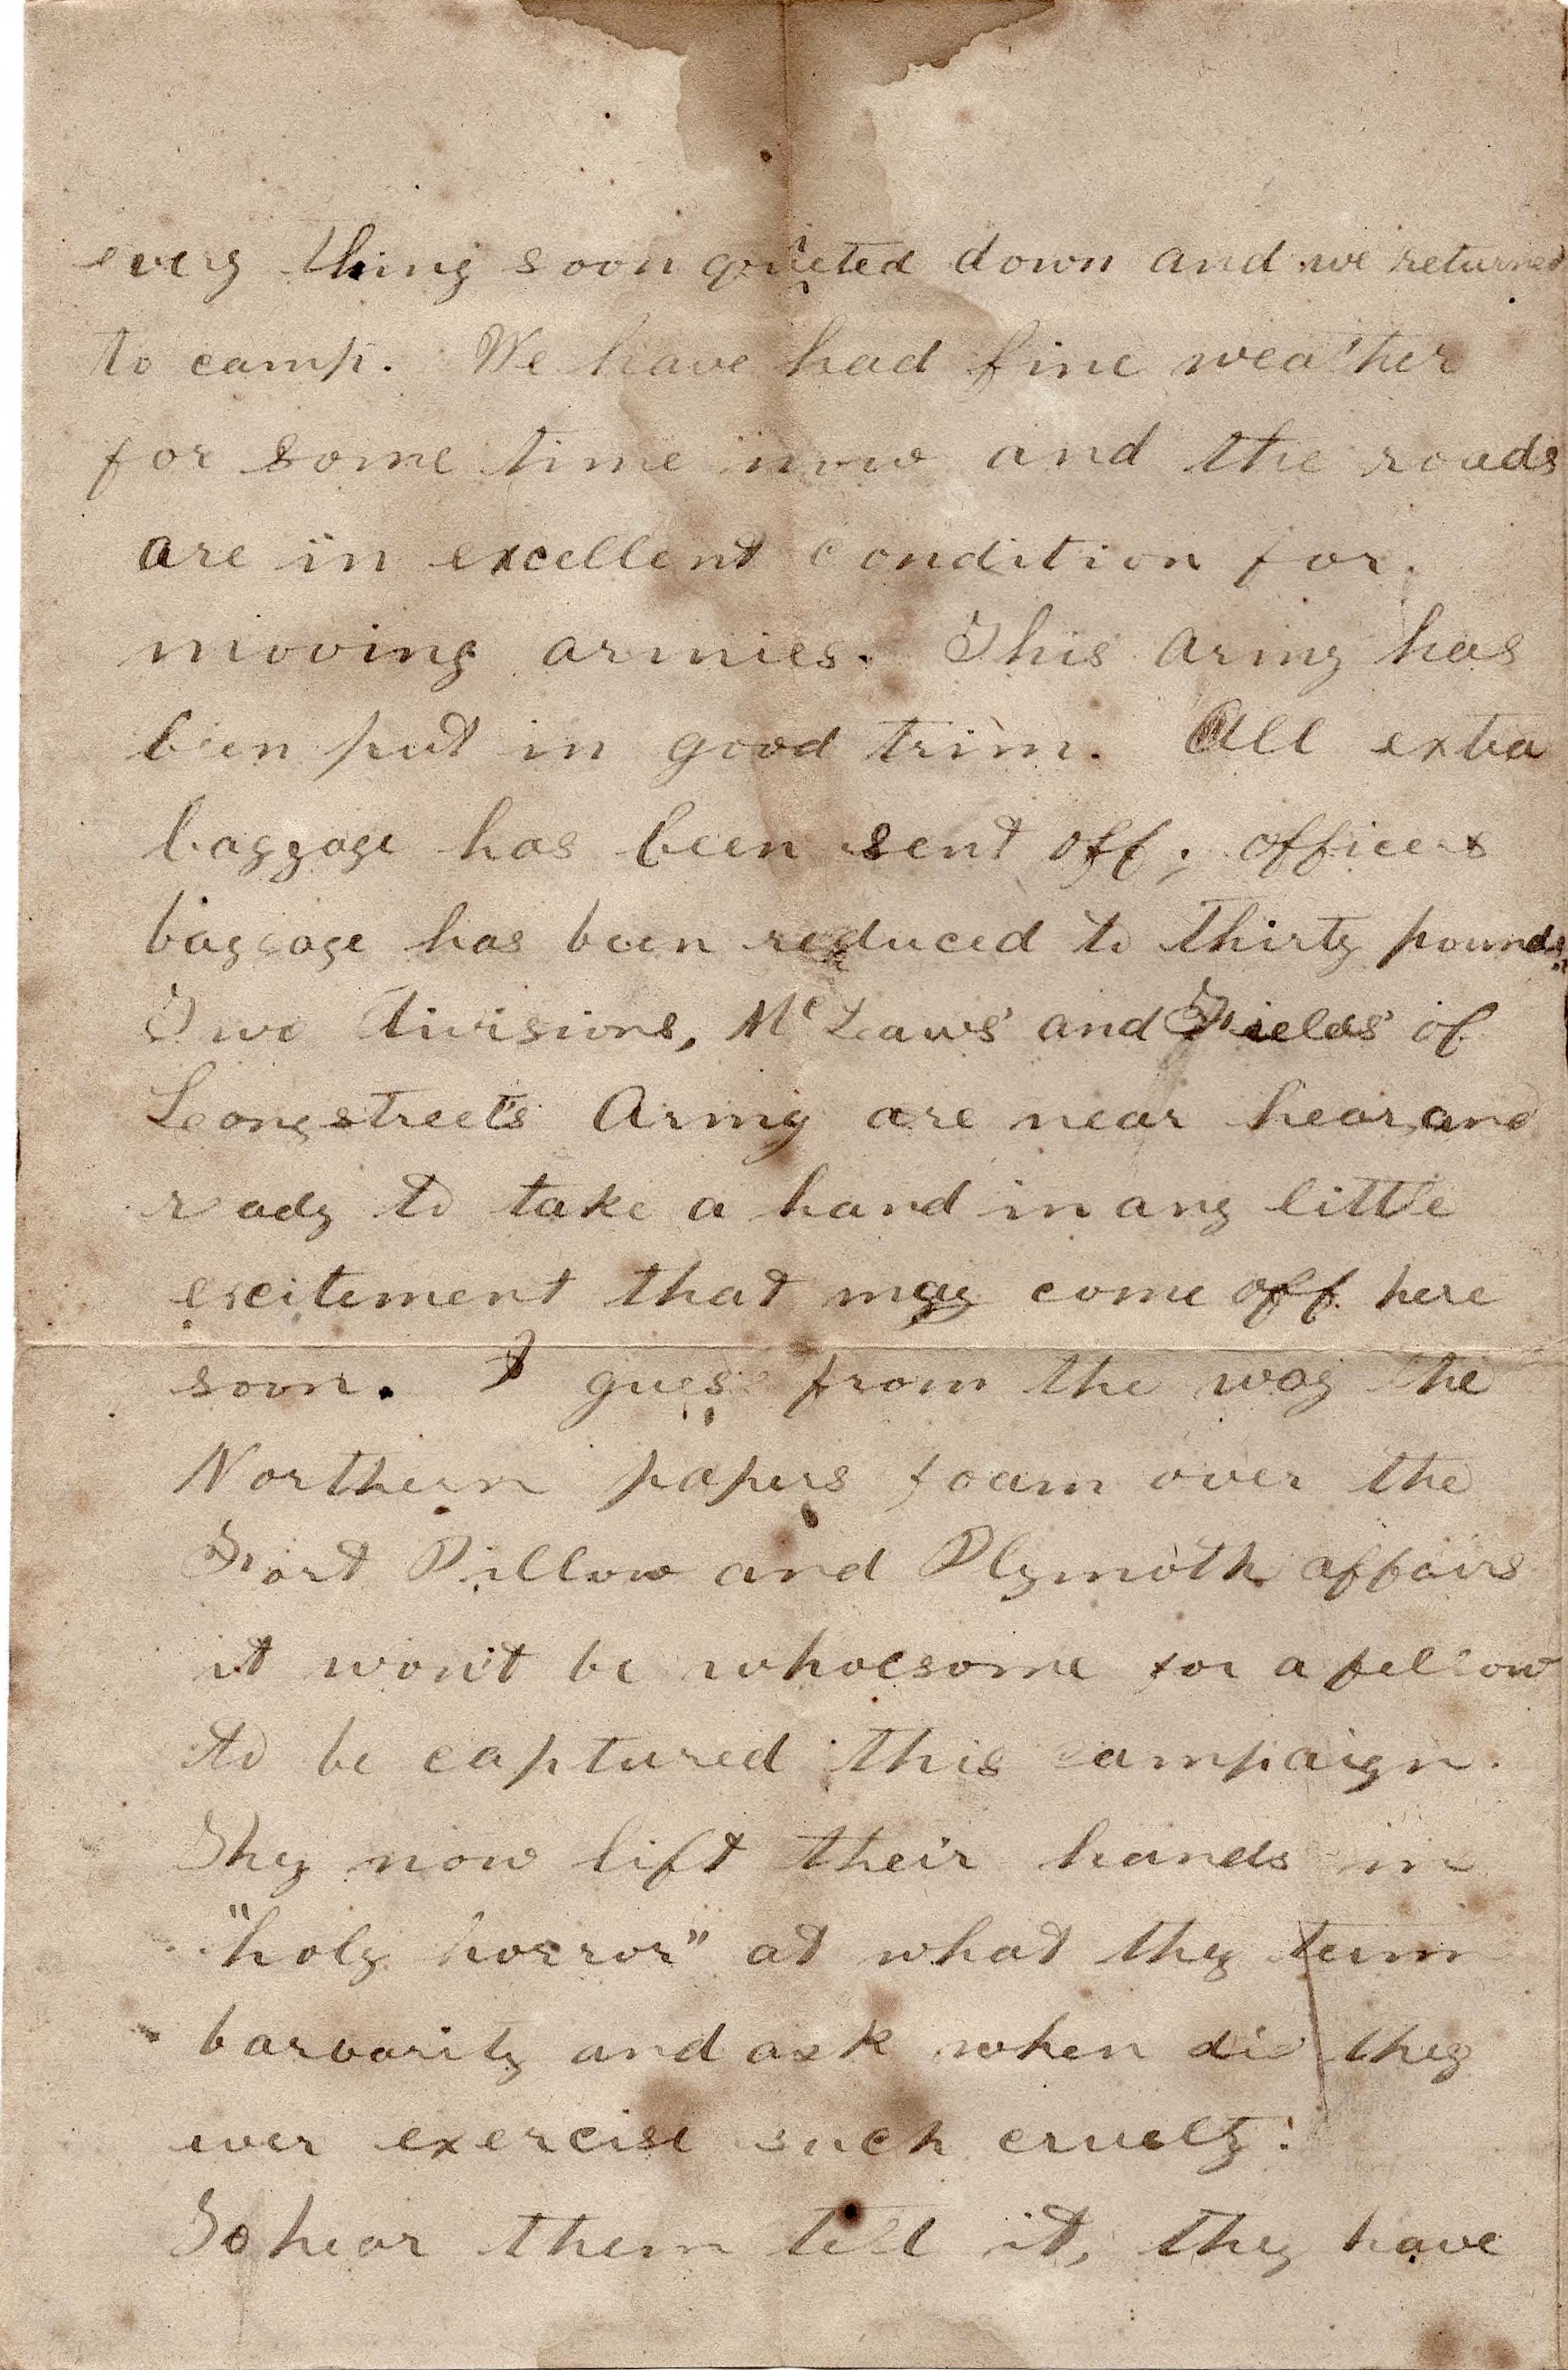 every thing soon quieted down and we returned
to camp. We have had fine weather
for some time now and the roads
are in excellent condition for
moving armies. This army has
been put in good trim. All extra
baggage has been sent off; officers
baggage has been reduced to thirty pounds.
Two divisions, McLaws' and Fields' of
Longstreet's Army are near hear, and
ready to take a hand in any little
excitement that may come off here
soon. I guess from the way the
Northern papers foam over the
Fort Pillow and Plymoth affairs
it won't be wholesome for a fellow
to be captured this campaign.
They now lift their hands in
"holy horror" at what they term
barbarity and ask when did they
ever exercise such cruelty.
To hear them tell it, they have